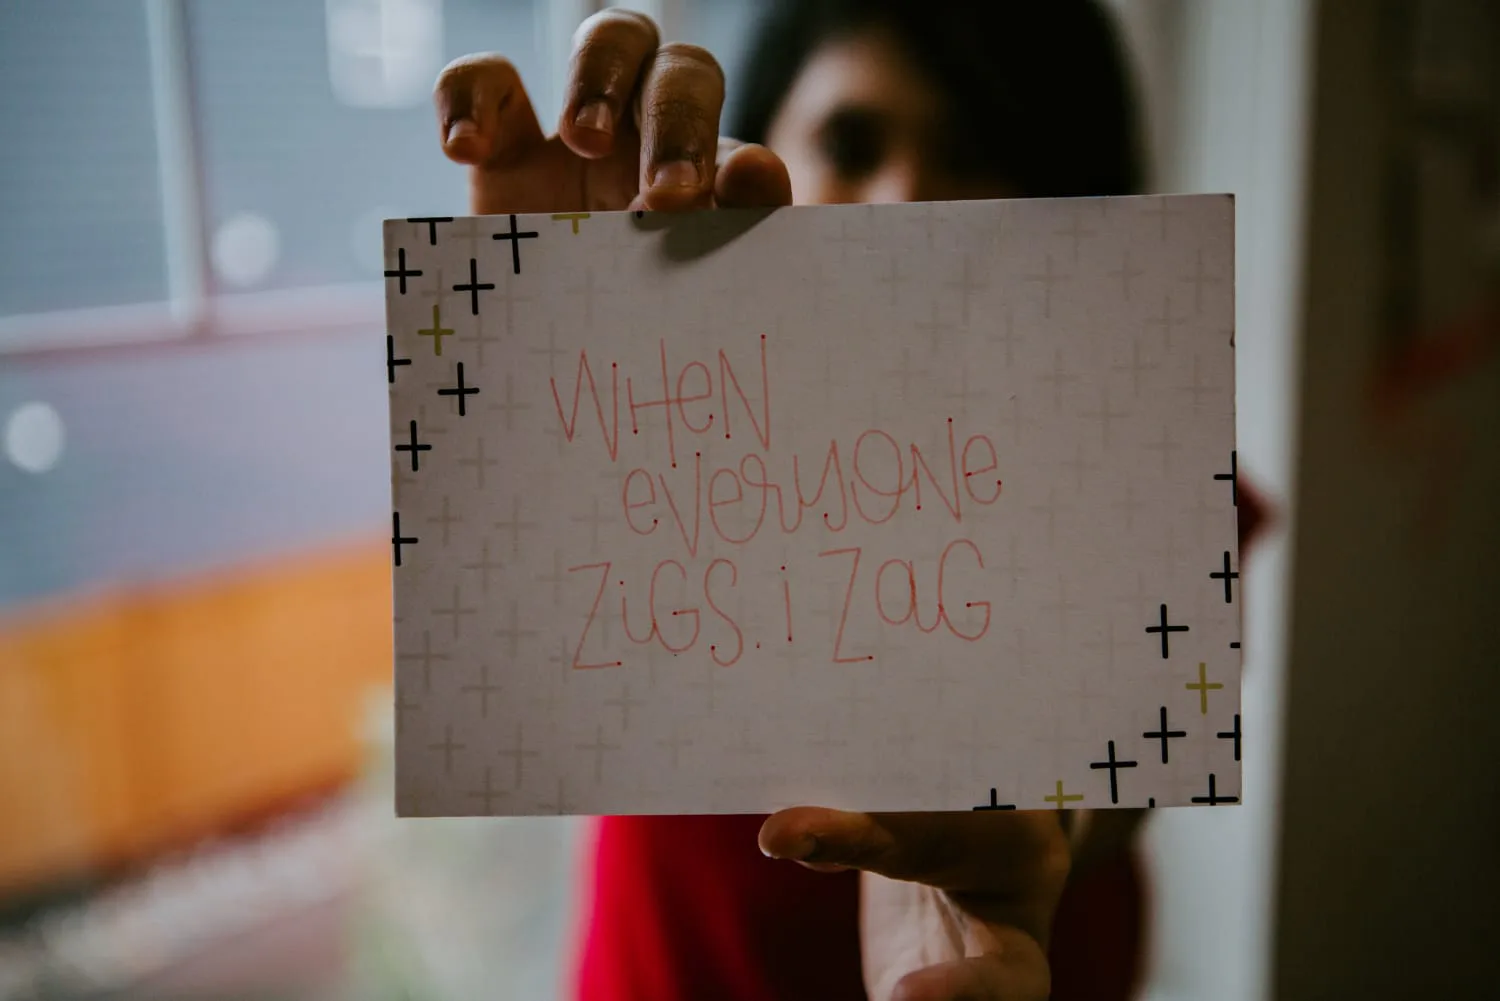 WHeN
eVeryONe
ZiGS. i ZaG